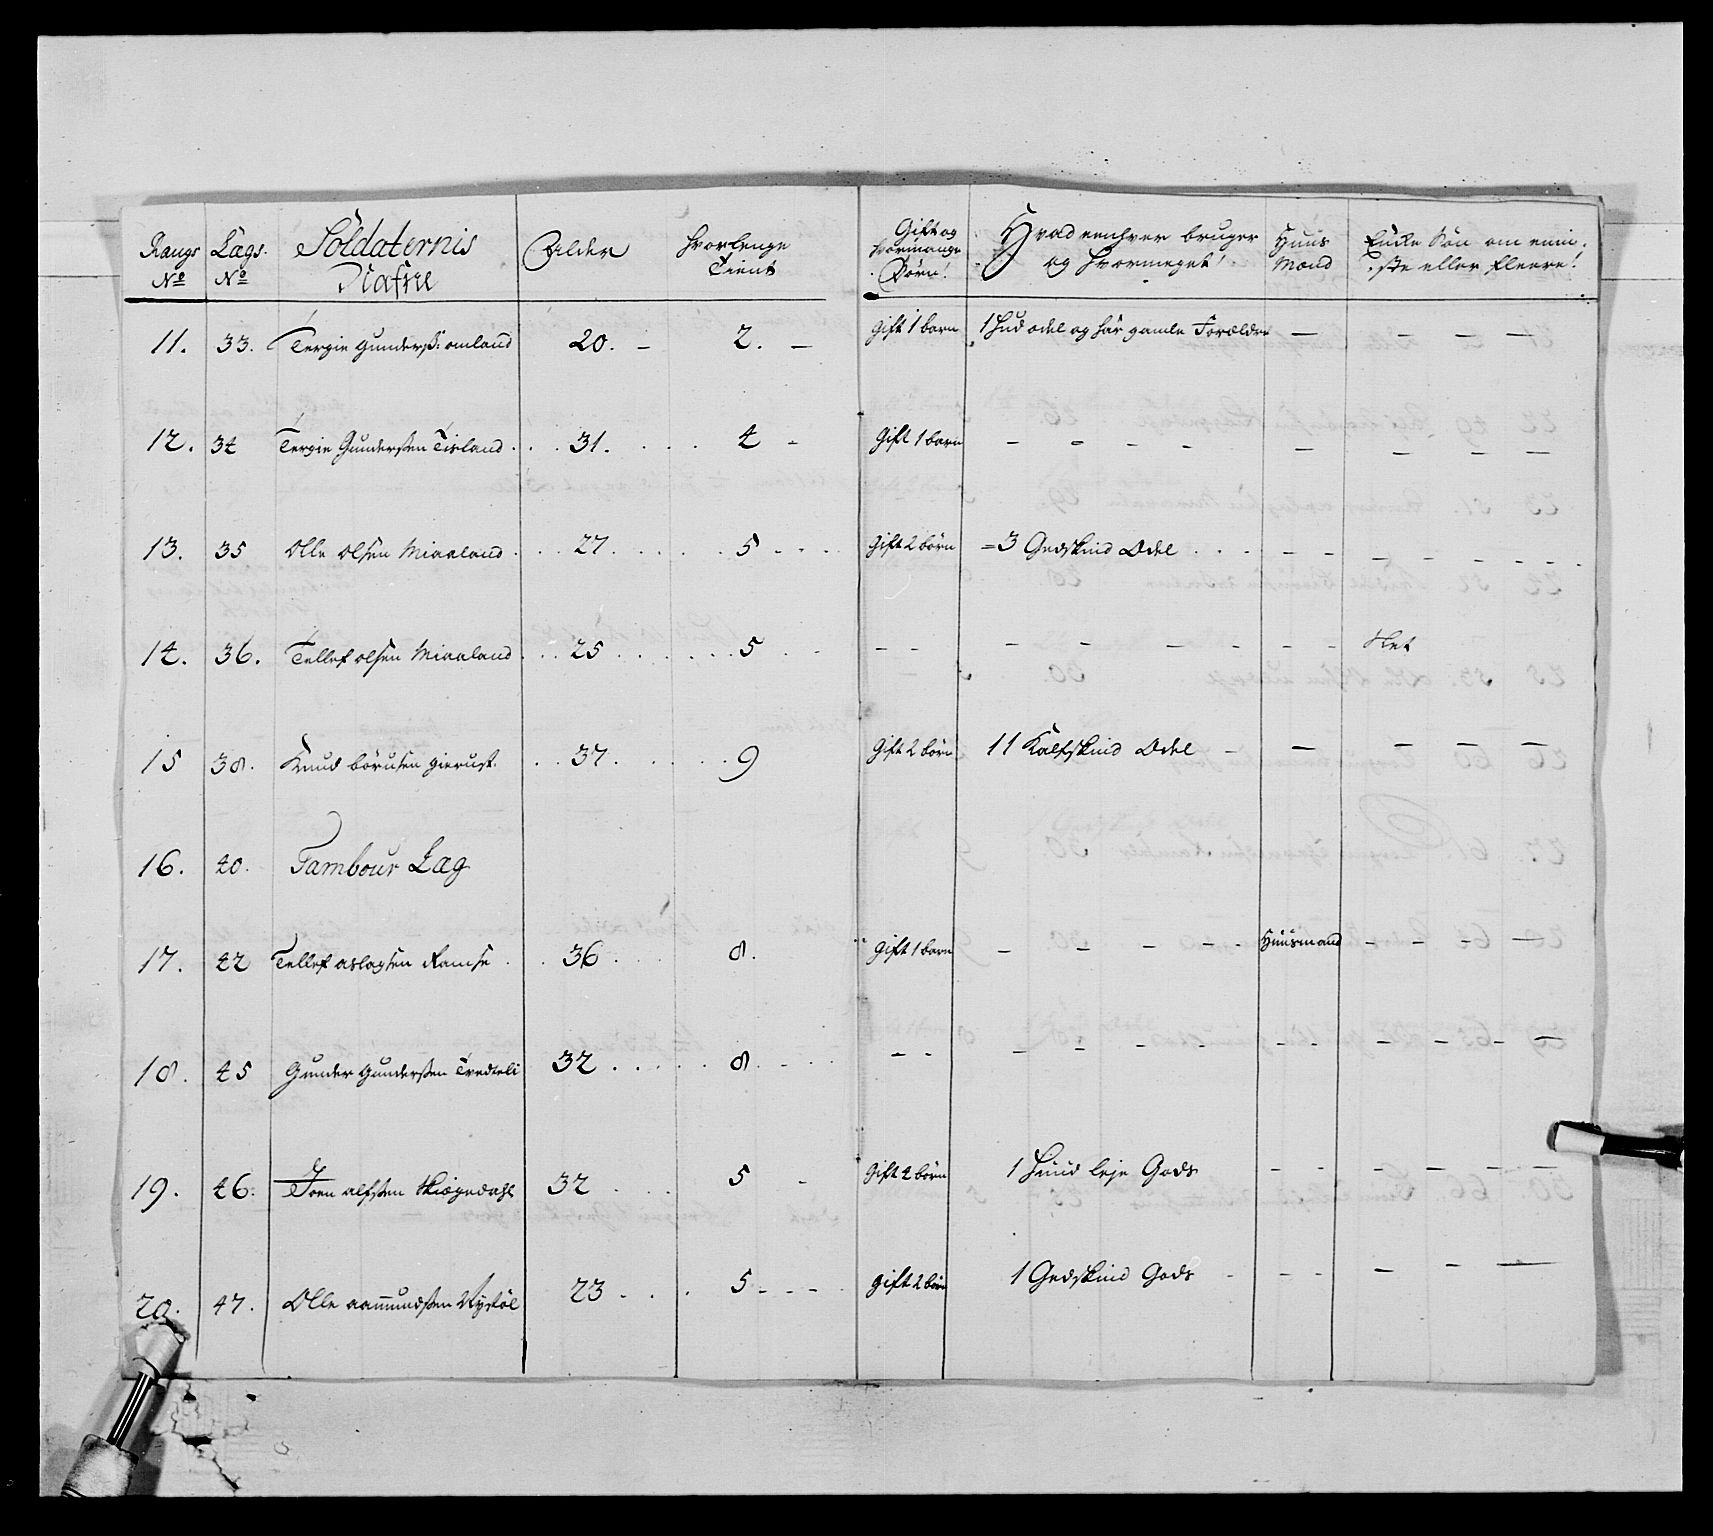 Rangs No | Lægs No | Soldaternis Nafne | Alder | hvorlenge Tient | Gift og hvormange Børn! | Hvad eenhver bruger og hvormeget! | Huus Mænd | Encke Søn om eeniste eller fleere!
11. | 33. | Tergie Gunderss: omland | 20. – | 2. – | Gift 1 barn | 1 Hud odel og har gamle Forældre | – | – – –
12. | 34 | Tergie Gundersen Tisland | 31. | 4 – | Gift 1 barn | – – – – | – | – – –
13. | 35 | Olle Olsen Miaaland | 27. | 5 | Gift 2 børn | = 3 Gedskind Odel | – – | – – – – –
14. | 36. | Tellef olsen Miaaland | 25 | 5 | – – | – – – – | – – | Net
15 | 38. | Knud börusen gierust. | 37. | 9 | Gift 2 børn | 11 Kalfskind Odel – | – | – – –
16. | 40. | Tambour Læg
17. | 42 | Tellef aslagsen Ramse | 36 | 8. | Gift 1 barn | – – – – | Huusmand | – – – –
18. | 45 | Gunder Gundersen Tvedteli | 32 | 8. | – – | – – – – | – – | – – – –
19. | 46. | Joen alfsen Skiægedahl | 32 | 5 – | Gift 2 børn | 1 Huud leje Gods | – – | – – – –
20. | 47. | Olle aamundsen Nystöl | 23 | 5 | Gift 2 børn | 1 Gedskind Gods – | – – | – – –